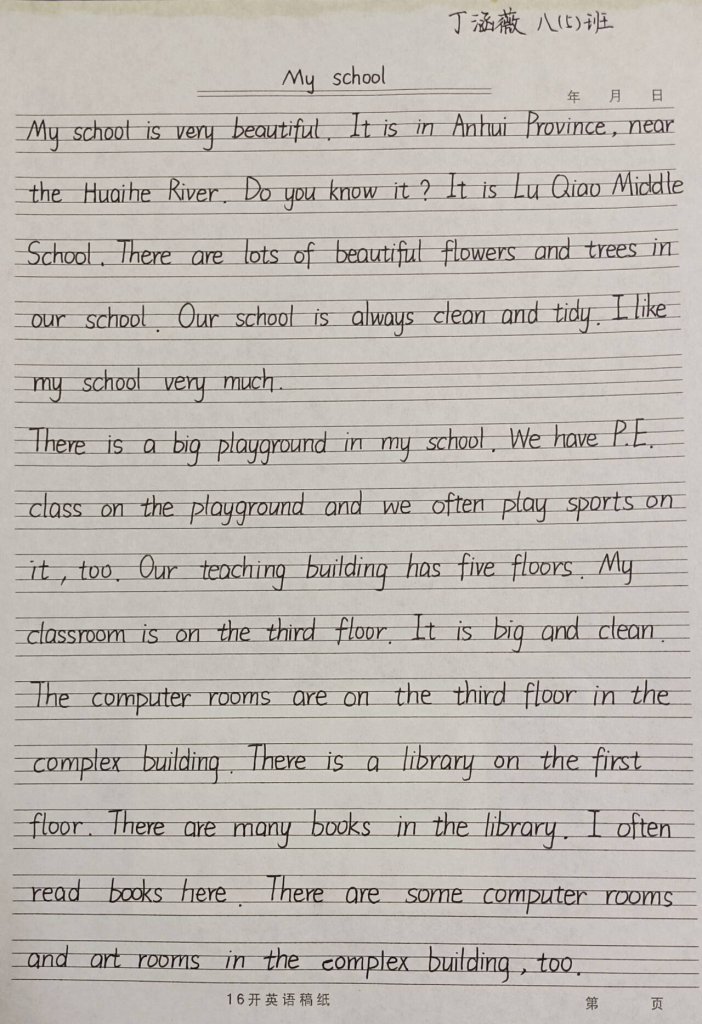 丁涵薇 八(5)班
My school
年 月 日
My school is very beautiful. It is in Anhui Province, near
the Huaihe River. Do you know it? It is Lu Qiao Middle
School. There are lots of beautiful flowers and trees in
our school. Our school is always clean and tidy. I like
my school very much.
There is a big playground in my school. We have P.E.
class on the playground and we often play sports on
it, too. Our teaching building has five floors. My
classroom is on the third floor. It is big and clean.
The computer rooms are on the third floor in the
complex building. There is a library on the first
floor. There are many books in the library. I often
read books here. There are some computer rooms
and art rooms in the complex building, too.
16开英语稿纸 第 页